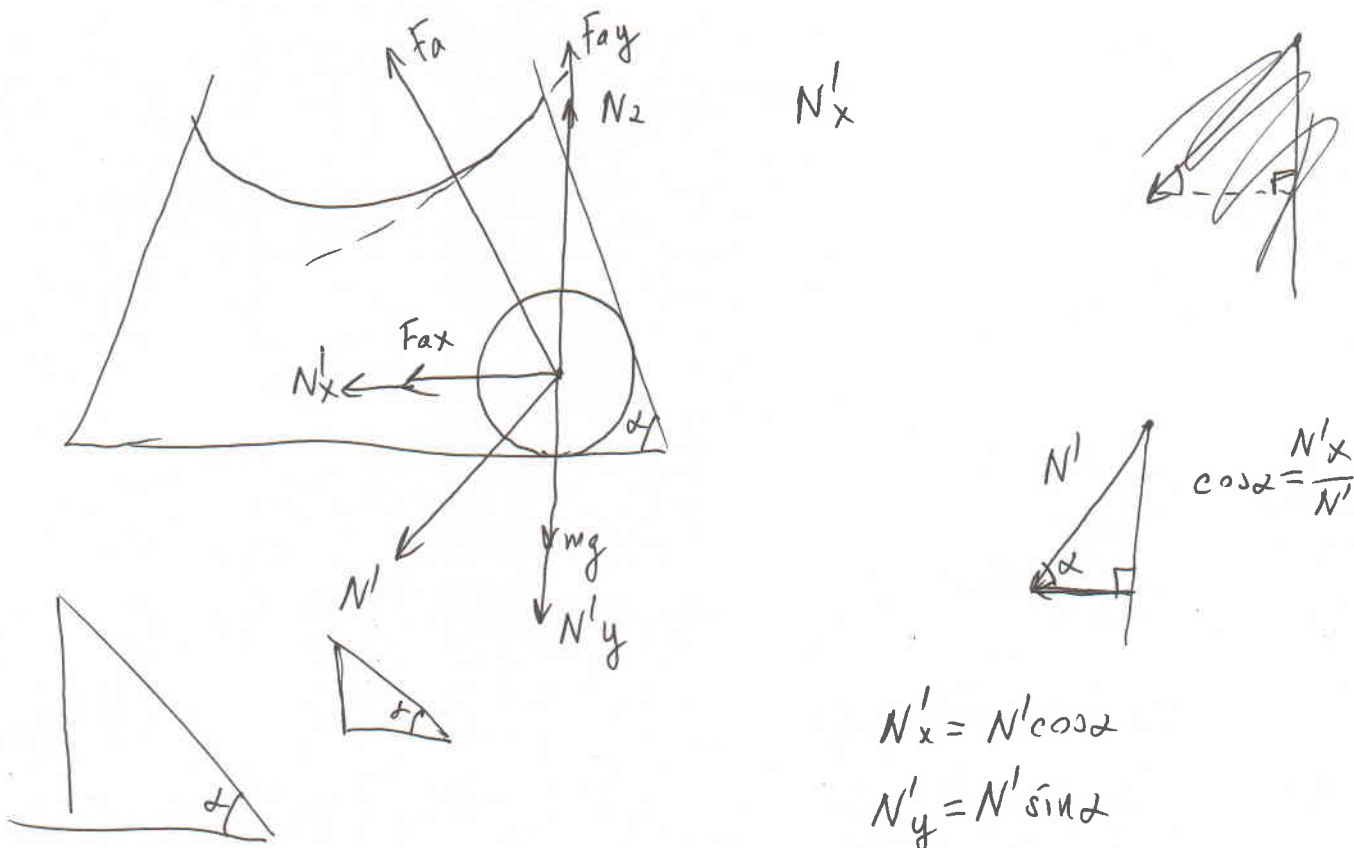 Fa
Fay
N2
N'x
Fax
N'x
α
mg
N'
N'y
N'
α
cosα = N'x / N'
α
α
N'x = N'cosα
N'y = N'sinα